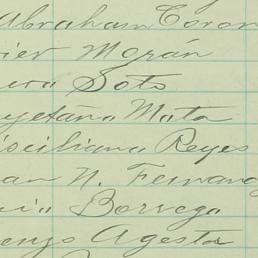 Abraham Coron
ier Morán
Soto
yetana Mata
isciliana Reyes
an N. Fernand
ia Borrego
enzo Agesta